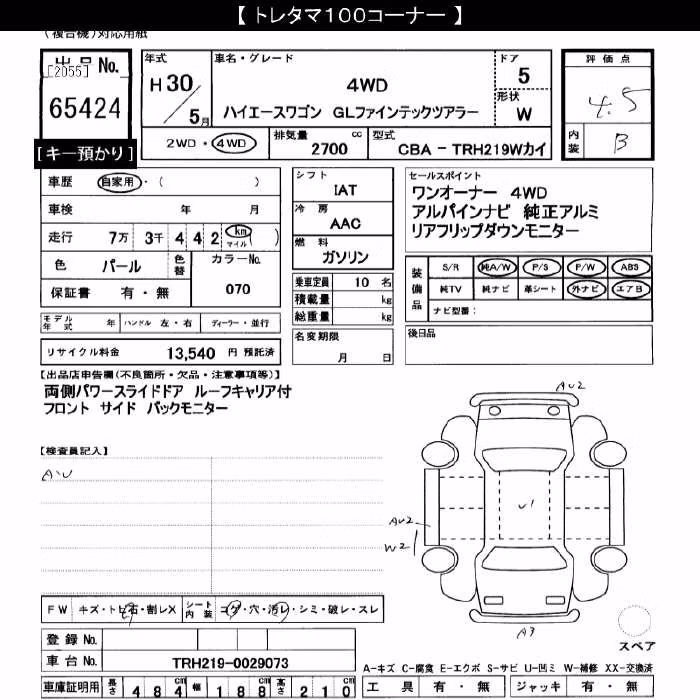 【 トレタマ100コーナー 】
(複合機)対応用紙
出品 No.
[2055]
65424
[キー預かり]
年式
H 30 / 5月
車名・グレード
4WD
ハイエースワゴン GLファインテックツアラー
ドア
5
形状
W
評価点
4.5
内装
B
2WD・4WD
排気量 2700 cc
型式 CBA − TRH219Wカイ
車歴 自家用・( )
車検 年 月
走行 7万 3千 4 4 2 (km マイル)
色 パール 色替
カラーNo. 070
保証書 有・無
シフト
IAT
冷房
AAC
燃料
ガソリン
乗車定員 10 名
積載量 kg
総重量 kg
名変期限
月 日
セールスポイント
ワンオーナー 4WD
アルパインナビ 純正アルミ
リアフリップダウンモニター
装備品
S/R 純A/W P/S P/W ABS
純TV 純ナビ 革シート 外ナビ エアB
ナビ型番:
後日品
モデル年式 年 ハンドル 左・右 ディーラー・並行
リサイクル料金 13,540 円 預託済
【出品店申告欄(不良箇所・欠品・注意事項等)】
両側パワースライドドア ルーフキャリア付
フロント サイド バックモニター
【検査員記入】
A・U
AU2
U1
AU2
W2
A3
スペア
FW キズ・トビ石・割レX
シート内装 コゲ・穴・汚レ・シミ・破レ・スレ
登録 No.
車台 No. TRH219-0029073
車庫証明用 長さ 484 cm 幅 188 cm 高さ 210 cm
A−キズ C−腐食 E−エクボ S−サビ U−凹ミ W−補修 XX−交換済
工具 有・無 ジャッキ 有・無